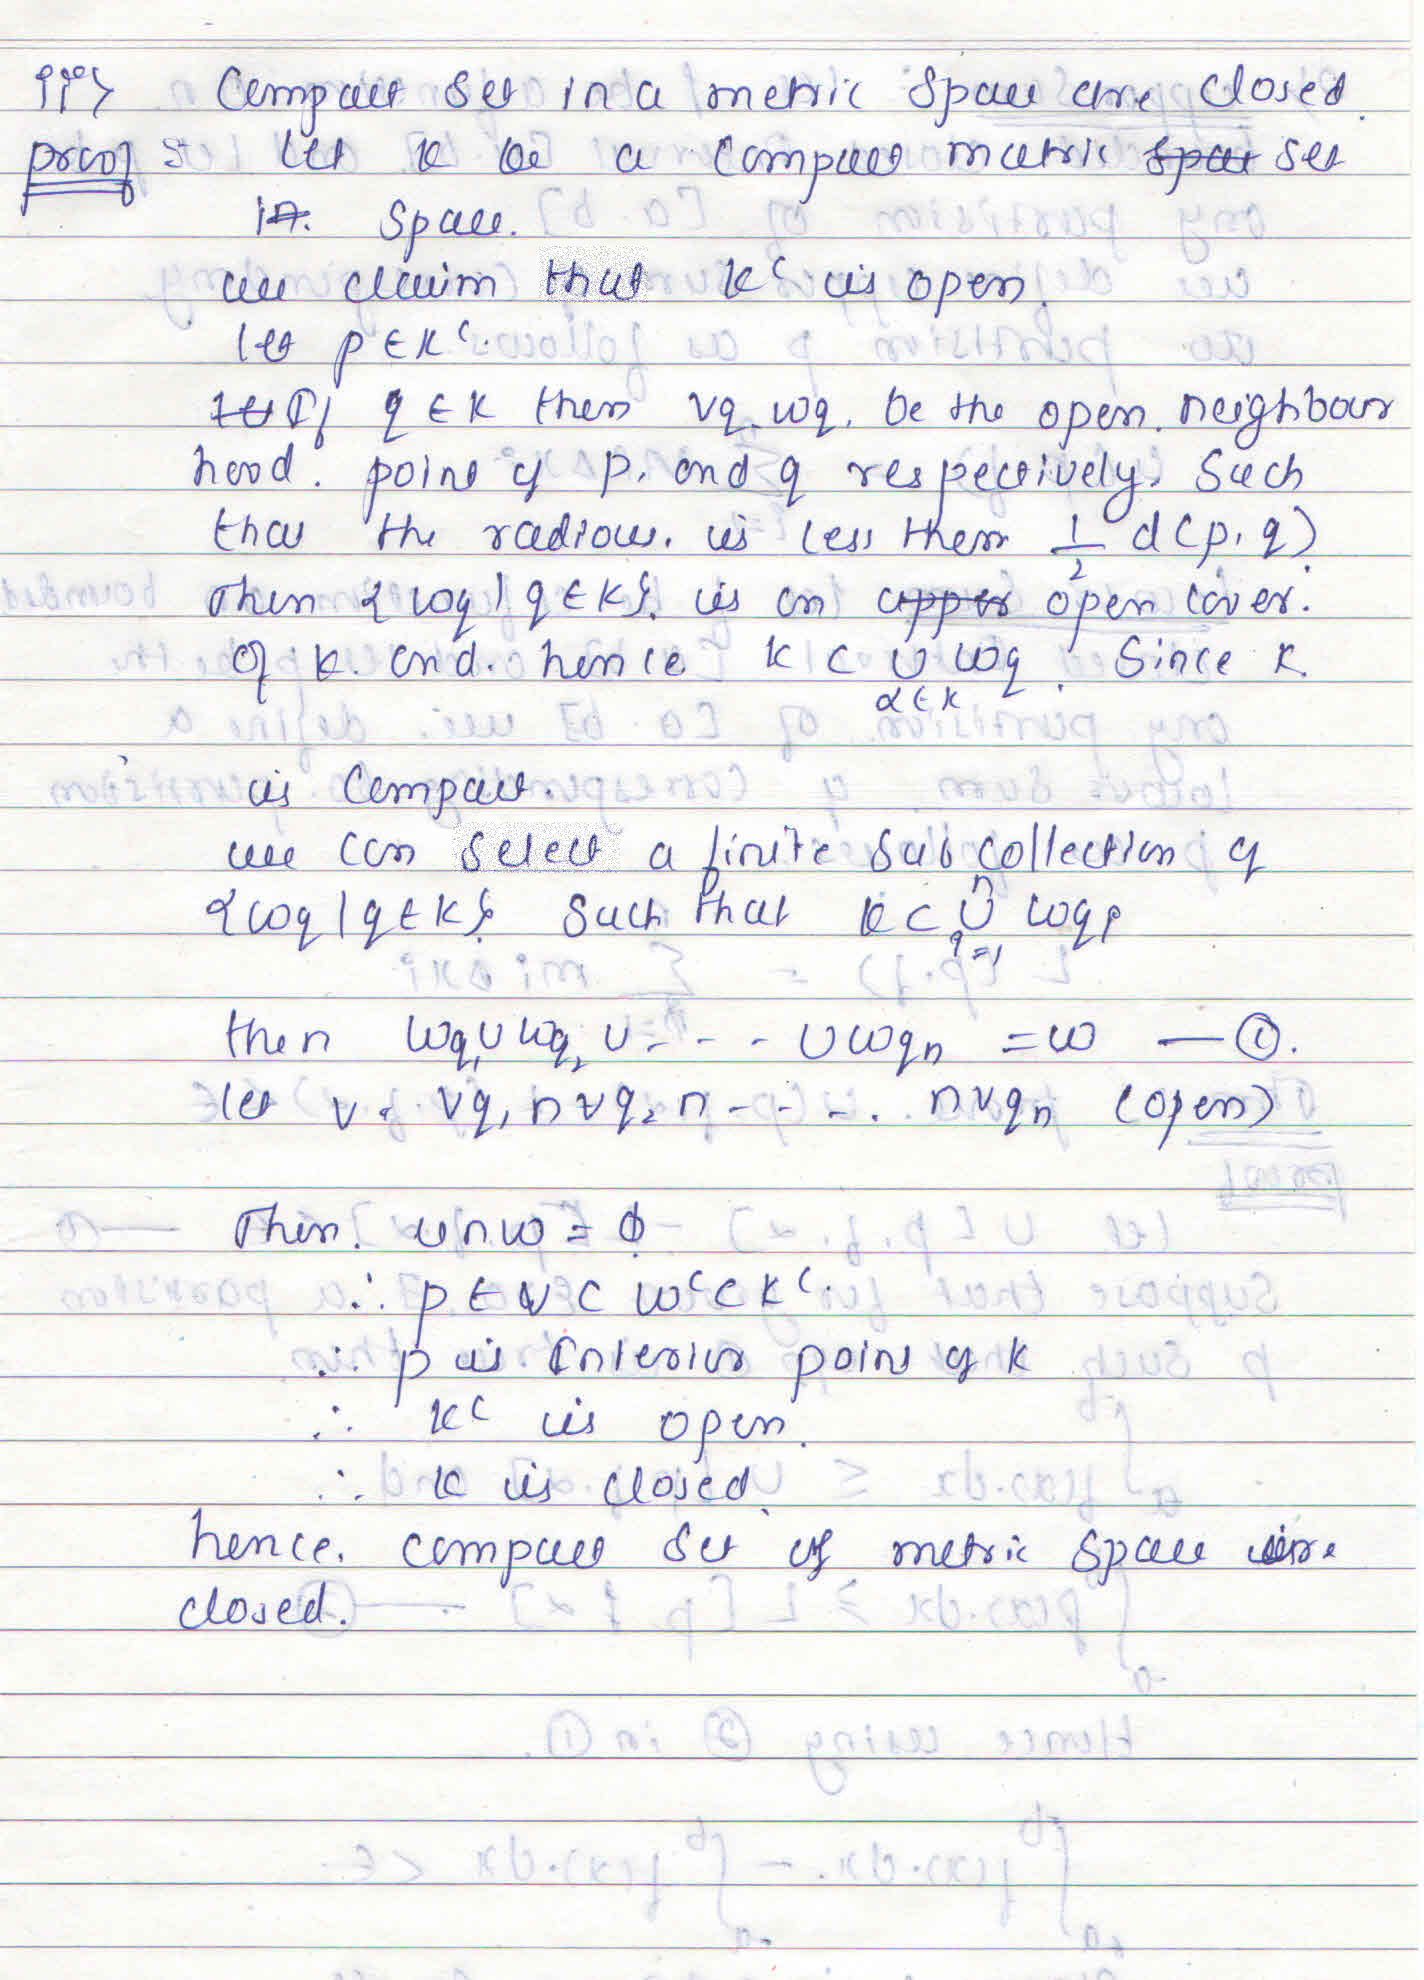 iii> Compact set in a metric space are closed.
proof :- let K be a compact metric space set
in. space.
we claim that K^c is open.
let p ∈ K^c.
let If q ∈ K then Vq, Wq, be the open neighbour
hood. point of p, and q respectively. Such
that the radious. is less then 1/2 d(p, q).
Then {Wq | q ∈ K}. is an upper open cover.
of K. and. hence K ⊂ ∪ Wq. Since K.
α ∈ K
is compact.
we can select a finite sub collection of
{Wq | q ∈ K}. Such that K ⊂ ∪ Wqi
n
i=1
then Wq1 ∪ Wq2 ∪ - - - ∪ Wqn = W — ①.
let V = Vq1 ∩ Vq2 ∩ - - - . ∩ Vqn (open)
Then. V ∩ W = ϕ
∴ p ∈ V ⊂ W^c ⊂ K^c.
∴ p is Interior point of K
∴ K^c is open.
∴ K is closed.
hence. compact set of metric space are.
closed.